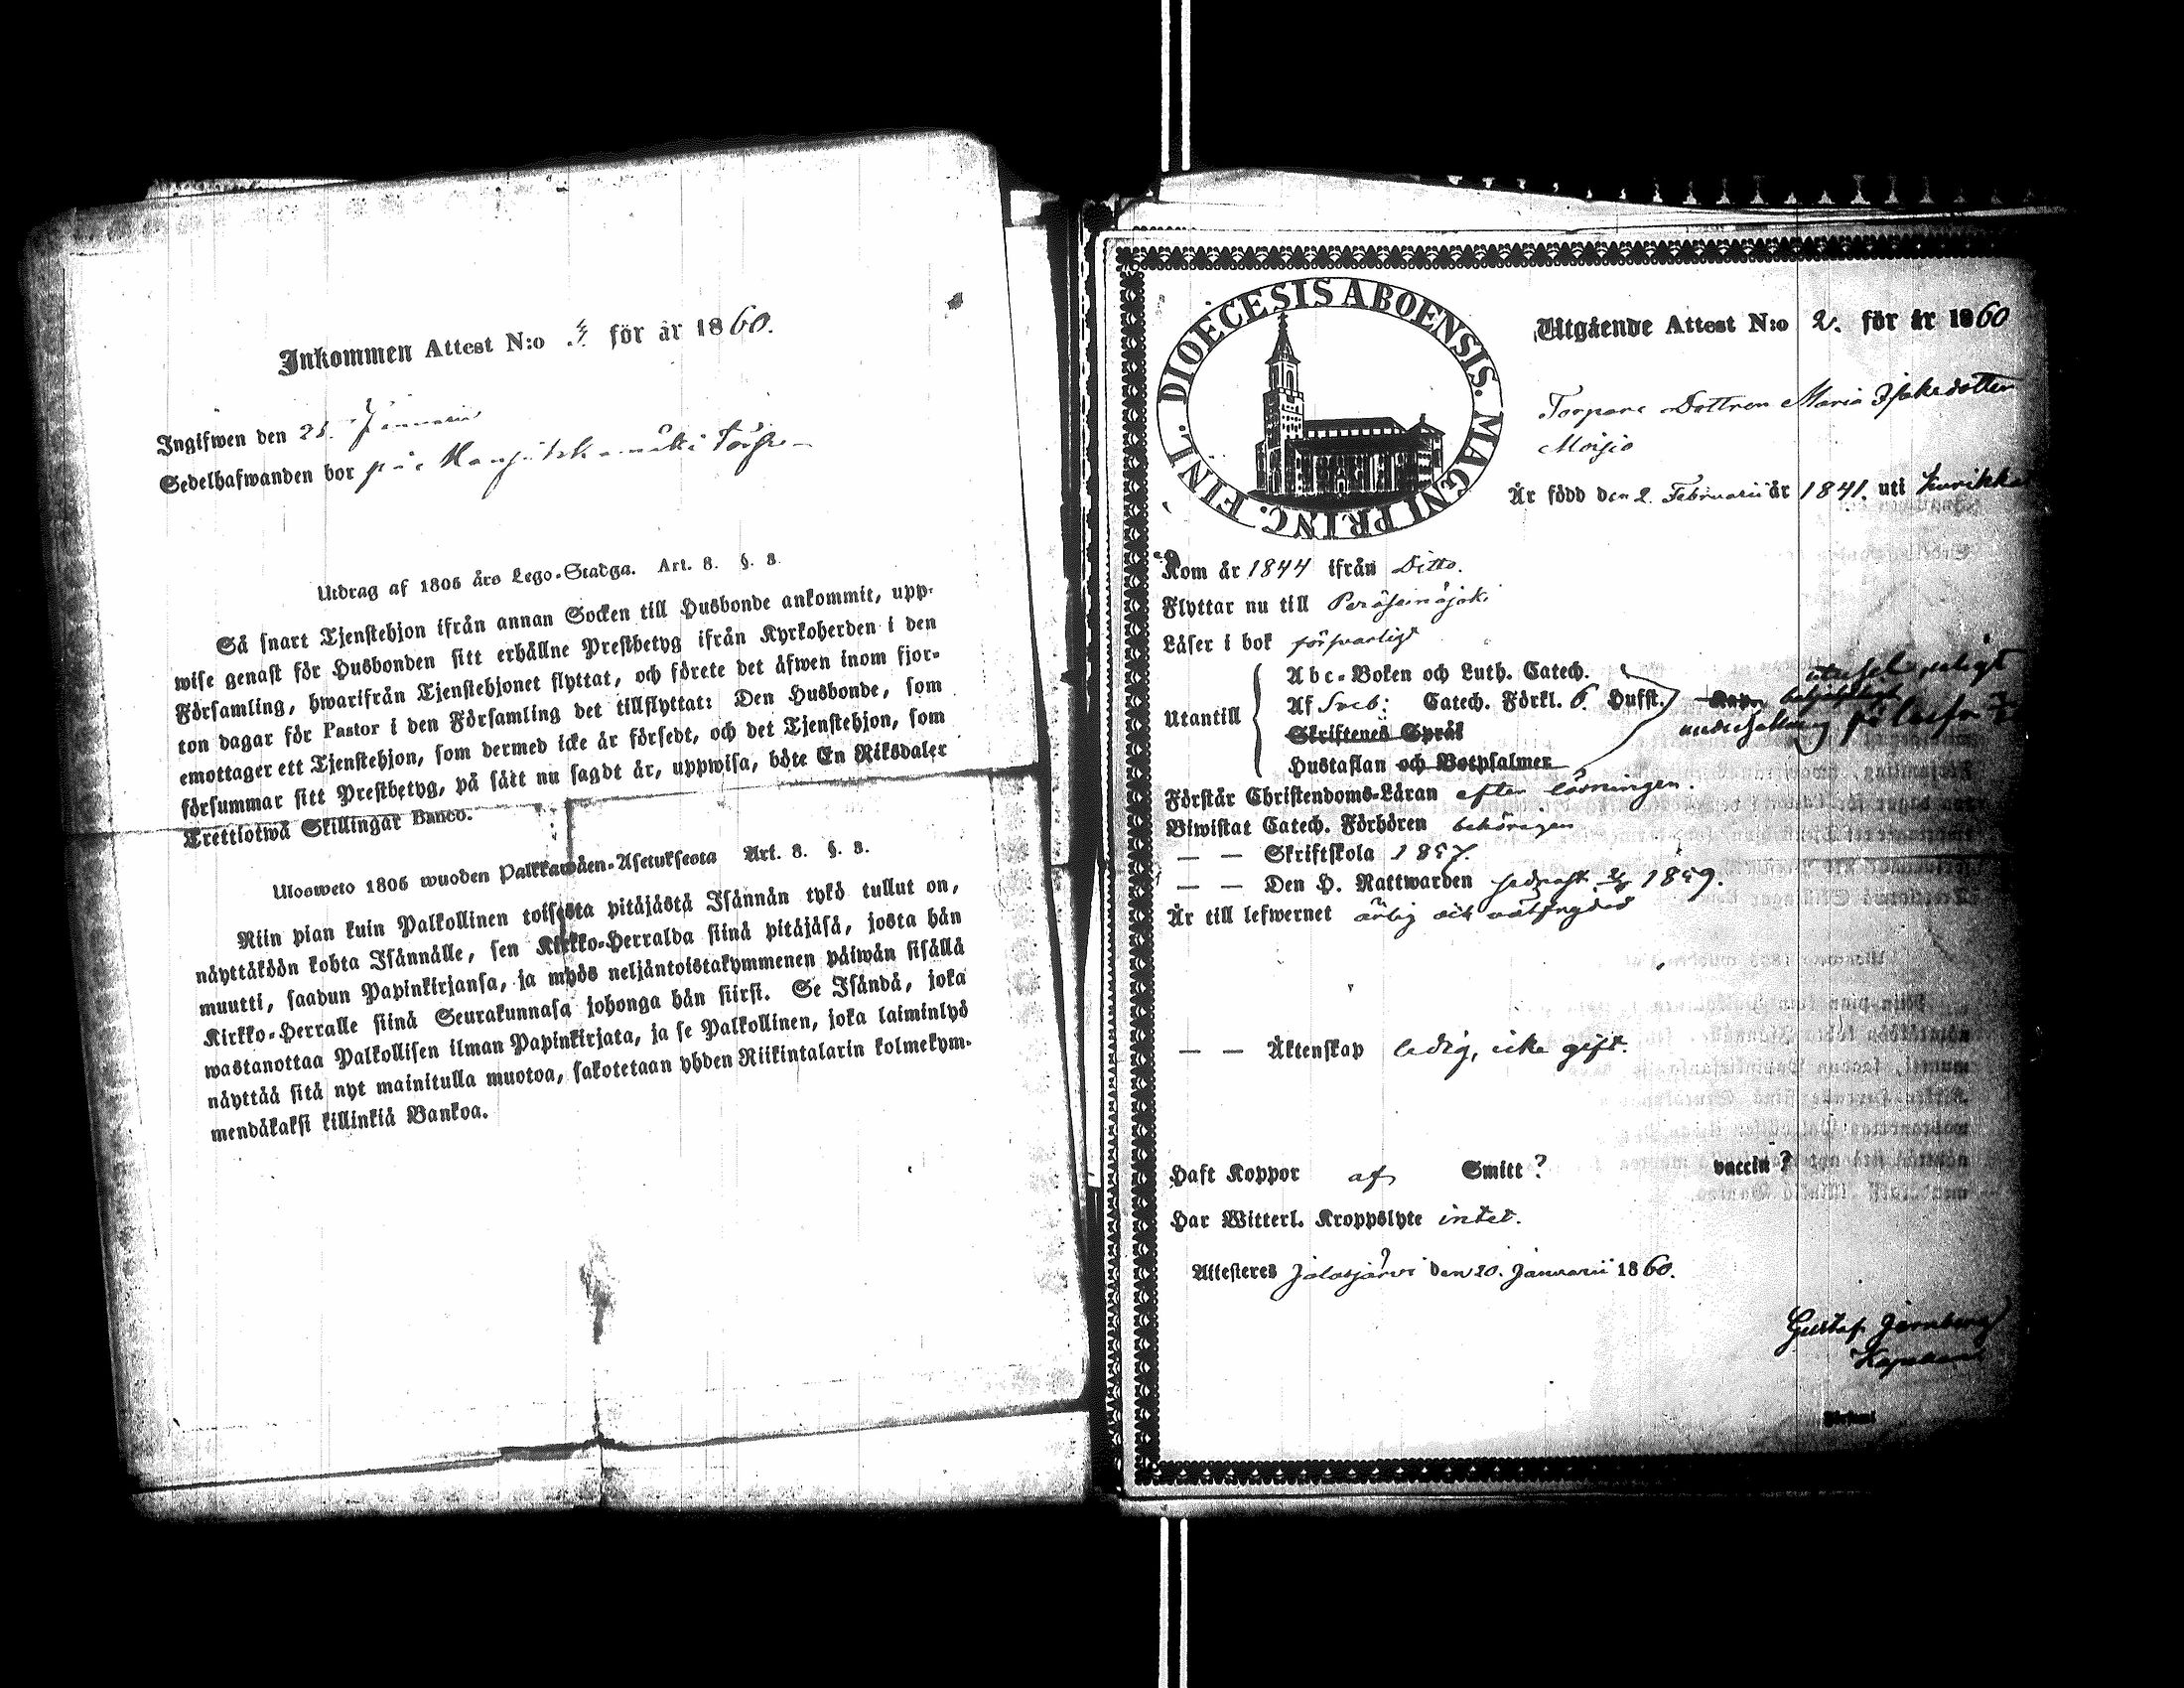 Inkommen Attest N:o för år 1860.
Ingifwen den 25. Januarii
Sedelhafwanden bor på
Utdrag af 1805 års Lego-Stadga. Art. 8. §. 3.
Så snart Tjenstehjon ifrån annan Socken till Husbonde ankommit, upp-
wise genast för Husbonden sitt erhållne Prestbetyg ifrån Kyrkoherden i den
Församling, hwarifrån Tjenstehjonet flyttat, och förete det äfwen inom fjor-
ton dagar för Pastor i den Församling det tillflyttat: Den Husbonde, som
emottager ett Tjenstehjon, som dermed icke är försedt, och det Tjenstehjon, som
försummar sitt Prestbetyg, på sätt nu sagdt är, uppwisa, böte En Riksdaler
Trettiotwå Skillingar Banco.
Ulosweto 1805 wuoden Palkkawäen-Asetuksesta Art. 8. §. 3.
Niin pian kuin Palkollinen toisesta pitäjästä Isännän tykö tullut on,
näyttäköön kohta Isännälle, sen Kirkko-Herralda siinä pitäjäsä, josta hän
muutti, saadun Papinkirjansa, ja myös neljäntoistakymmenen päiwän sisällä
Kirkko-Herralle siinä Seurakunnasa johonga hän siirsi. Se Isändä, joka
wastanottaa Palkollisen ilman Papinkirjata, ja se Palkollinen, joka laiminlyö
näyttää sitä nyt mainitulla muotoa, sakotetaan yhden Riikintalarin kolmekym-
mendäkaksi killinkiä Bankoa.
DIOECESIS ABOENSIS. MAGNI PRINC. FINL.
Utgående Attest N:o 2. för år 1860
Torpare Dottren Maria Isaksdotter
Moisio
Är född den 2. Februarii år 1841. uti Kurikka
Kom år 1844 ifrån Ditto.
Flyttar nu till Peräseinäjoki
Läser i bok försvarligt
Abc-Boken och Luth. Catech.
Utantill Af Sveb: Catech. Förkl. 6. Hufst.
Skriftenes Språk
Hustaflan och Botpsalmer
Förstår Christendoms-Läran efter läsningen.
Biwistat Catech. Förhören behörigen
— — Skriftskola 1857.
— — Den H. Nattwarden sednast 1859.
Är till lefwernet ärlig och välfrejdad
— — Äktenskap ledig, icke gift.
Haft Koppor af Smitt? vaccin?
Har Witterl. Kroppslyte intet.
Attesteres Jalasjärvi den 20. Januarii 1860.
Gustaf Jernberg
Kapellan